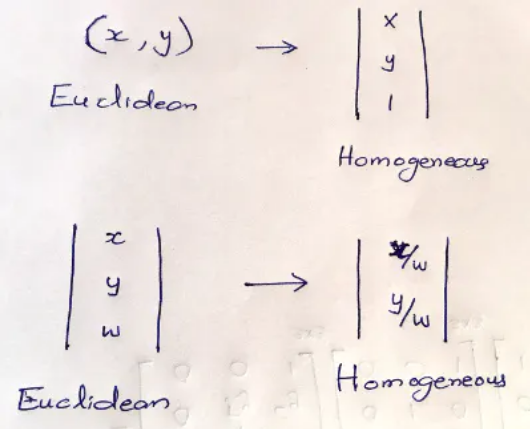 (x, y) → | x |
| y |
| 1 |
Euclidean
Homogeneous
| x | → | x/w |
| y | | y/w |
| w |
Euclidean
Homogeneous